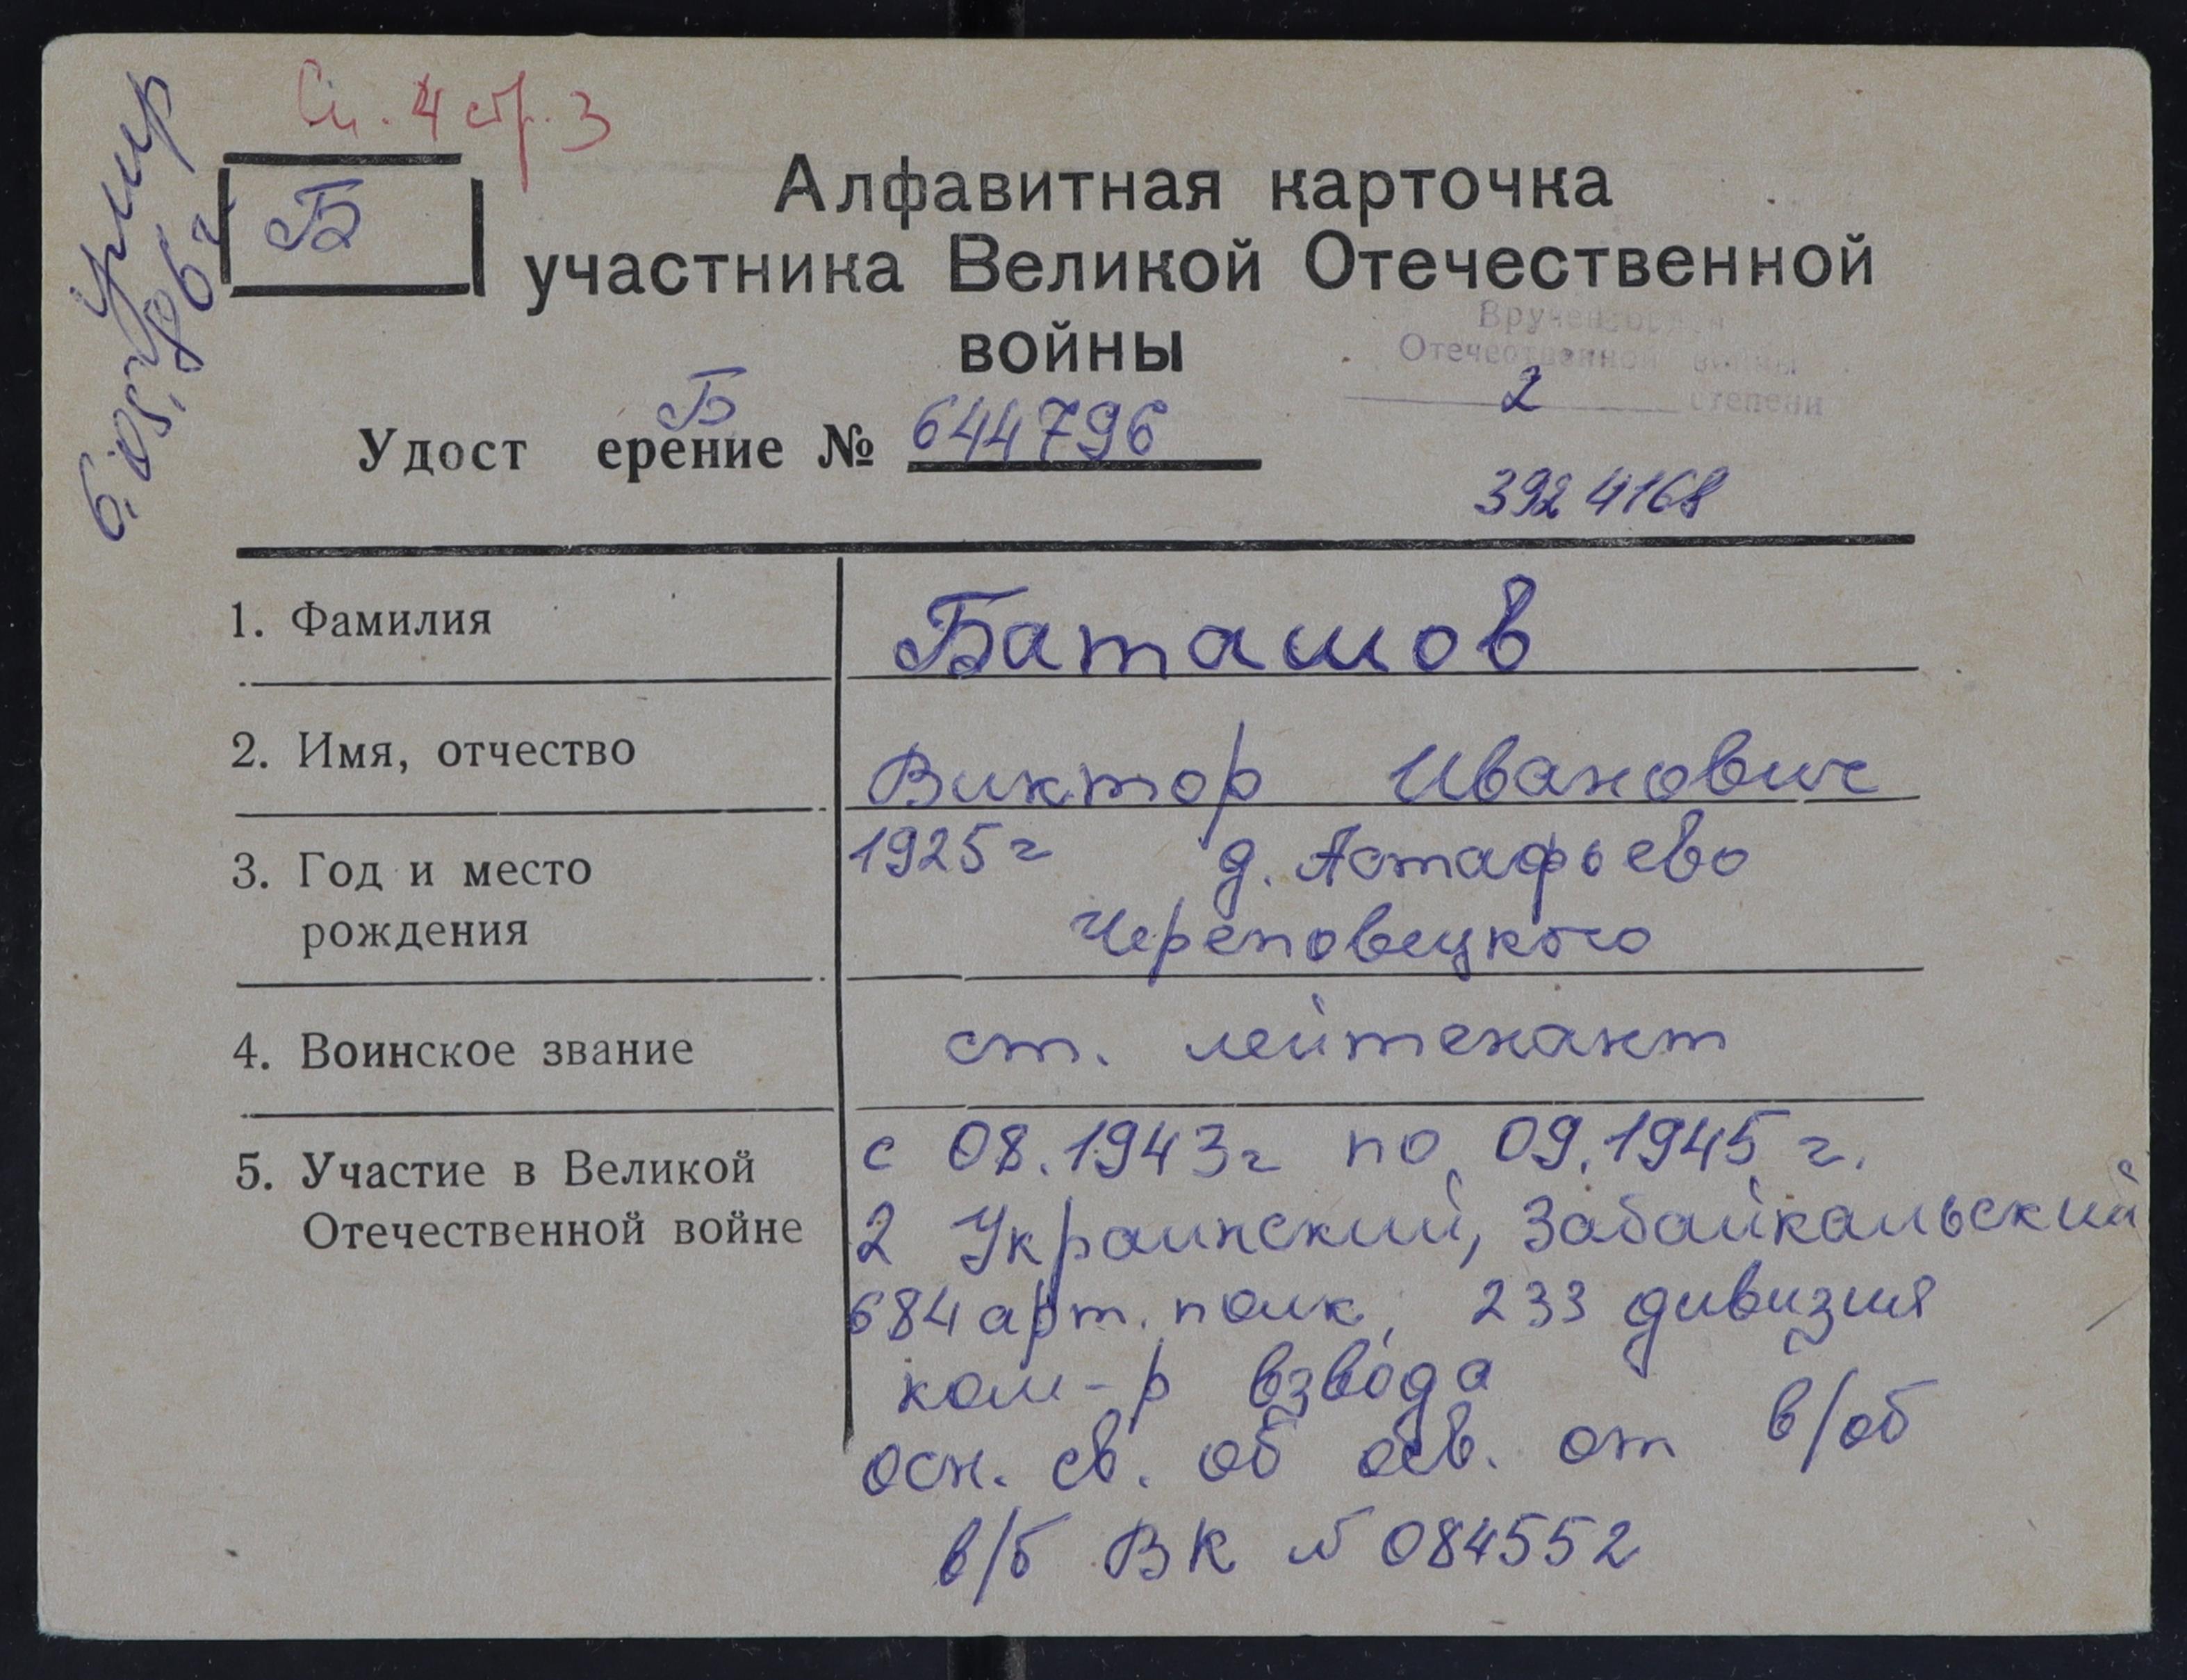 Сп. 4 стр. 3
умер
6.05.86 г.
Б
Алфавитная карточка
участника Великой Отечественной
войны
Вручен орден
Отечественной войны
2 степени
Б
Удост ерение № 644796
3924168
1. Фамилия
Баташов
2. Имя, отчество
Виктор Иванович
3. Год и место
рождения
1925г д. Астафьево
Череповецкого
4. Воинское звание
ст. лейтенант
5. Участие в Великой
Отечественной войне
с 08.1943г по 09.1945 г.
2 Украинский, Забайкальский
684 арт. полк, 233 дивизия
ком-р взвода
осн. св. об осв. от в/об
в/б ВК № 084552